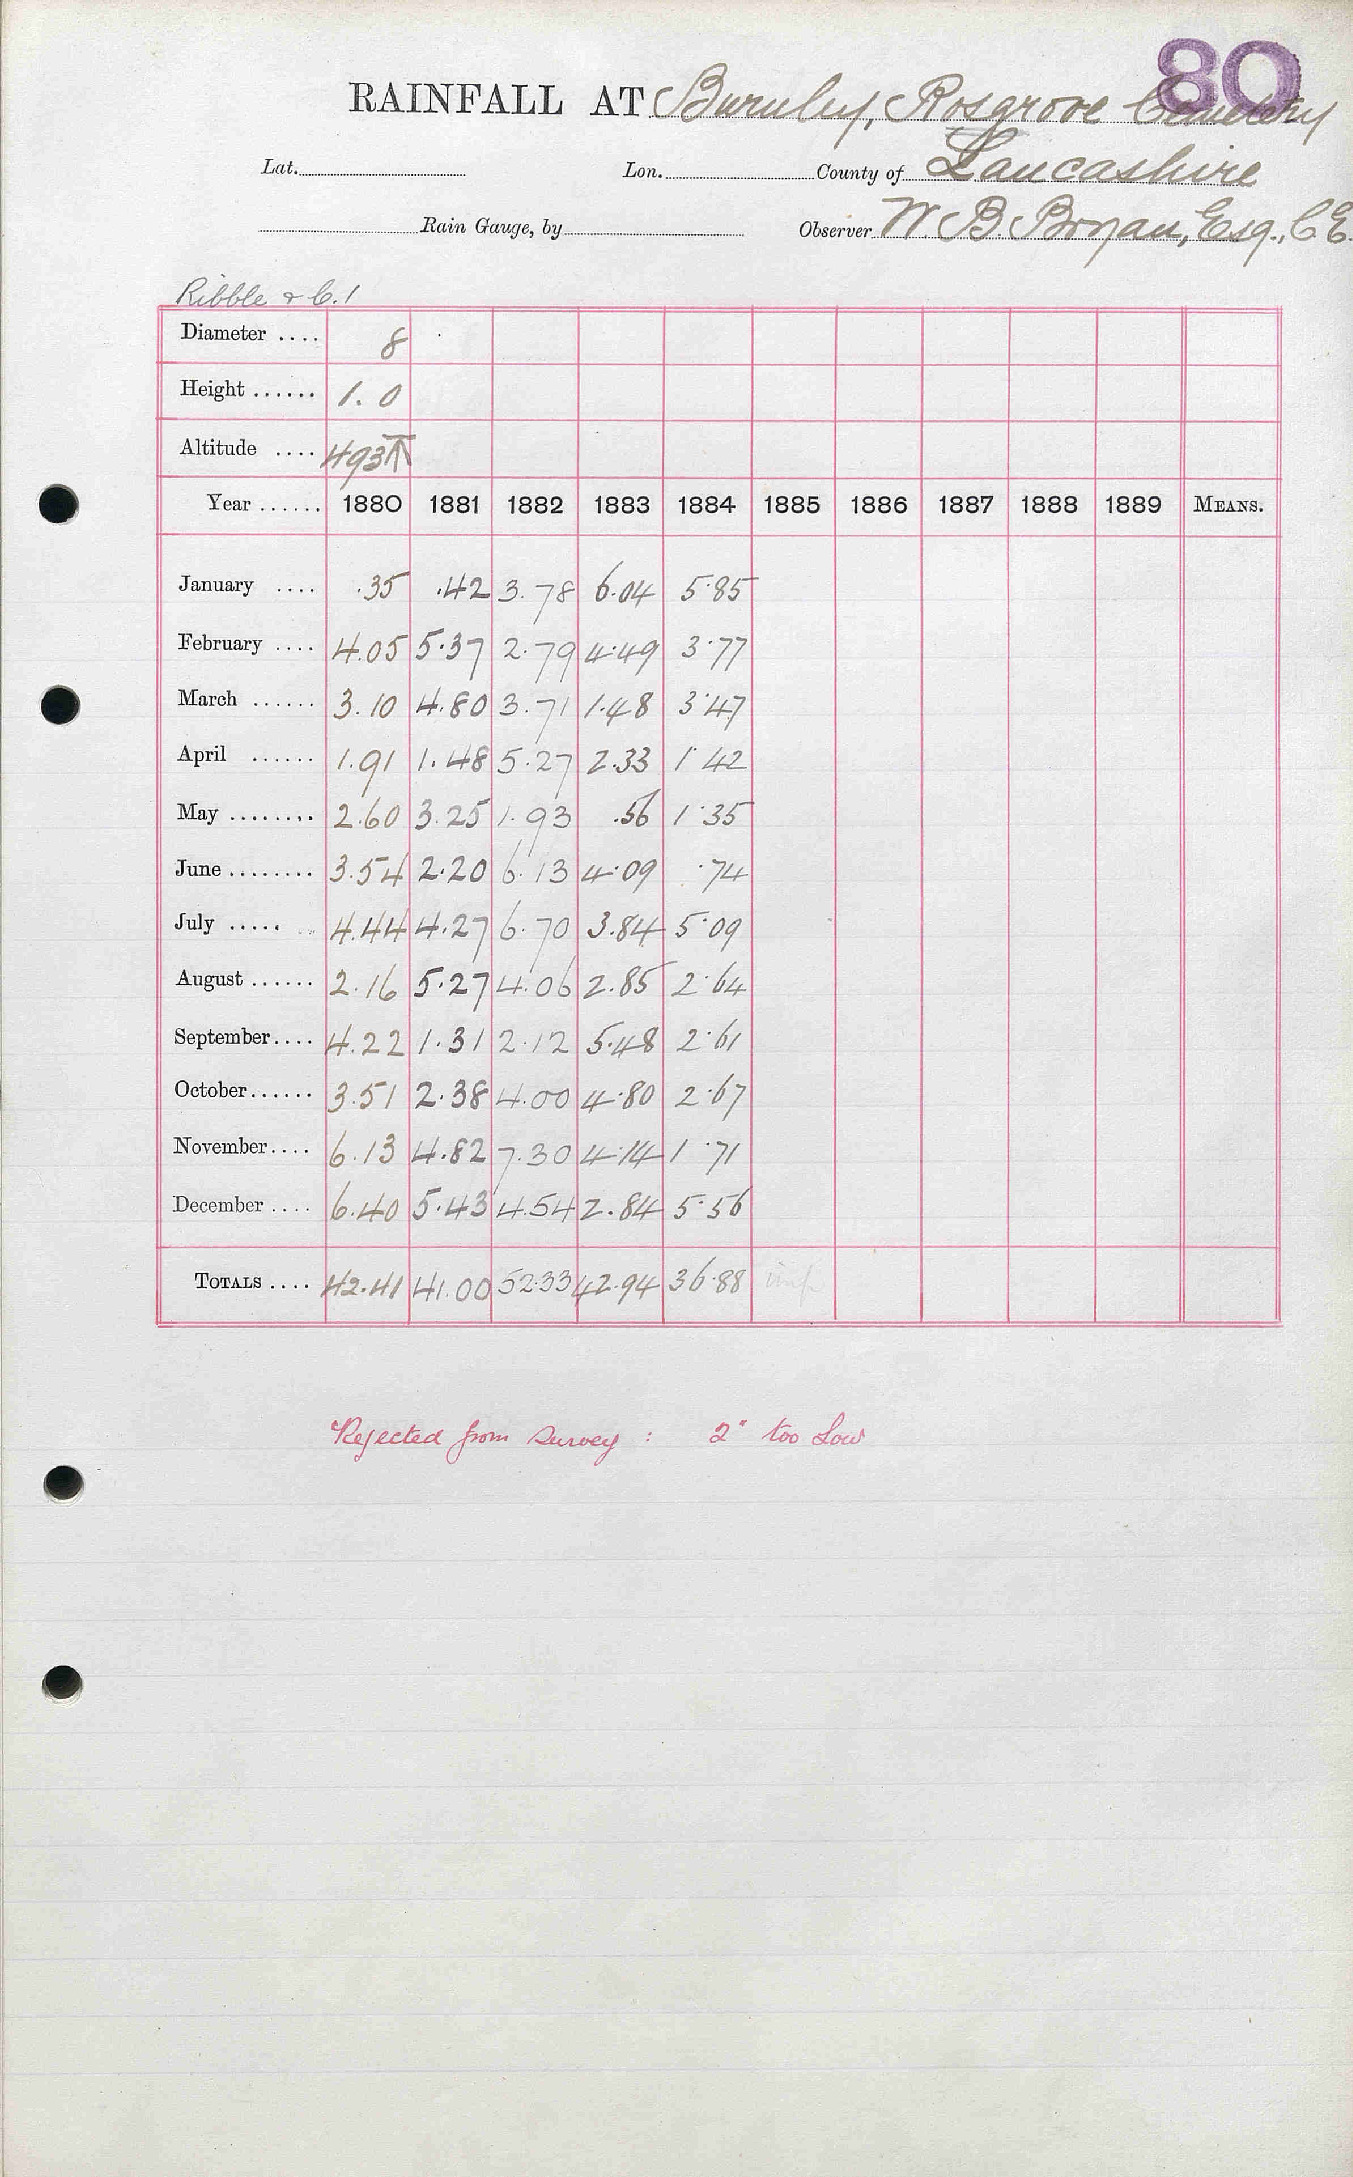 80
RAINFALL AT Burnley, Rosgrove Cemetery
Lat. Lon. County of Lancashire
Rain Gauge, by Observer W. B. Bryan, Esq., C.E.
Ribble & C.1
Diameter .... 8
Height ...... 1.0
Altitude .... 493
Year ...... 1880 1881 1882 1883 1884 1885 1886 1887 1888 1889 MEANS.
January .... .35 .42 3.78 6.04 5.85
February .... 4.05 5.37 2.79 4.49 3.77
March ...... 3.10 4.80 3.71 1.48 3.47
April ...... 1.91 1.48 5.27 2.33 1.42
May ........ 2.60 3.25 1.93 .56 1.35
June ........ 3.54 2.20 6.13 4.09 .74
July ..... 4.44 4.27 6.70 3.84 5.09
August ...... 2.16 5.27 4.06 2.85 2.64
September.... 4.22 1.31 2.12 5.48 2.61
October...... 3.51 2.38 4.00 4.80 2.67
November.... 6.13 4.82 7.30 4.14 1.71
December .... 6.40 5.43 4.54 2.84 5.56
TOTALS .... 42.41 41.00 52.33 42.94 36.88
Rejected from survey : 2" too Low